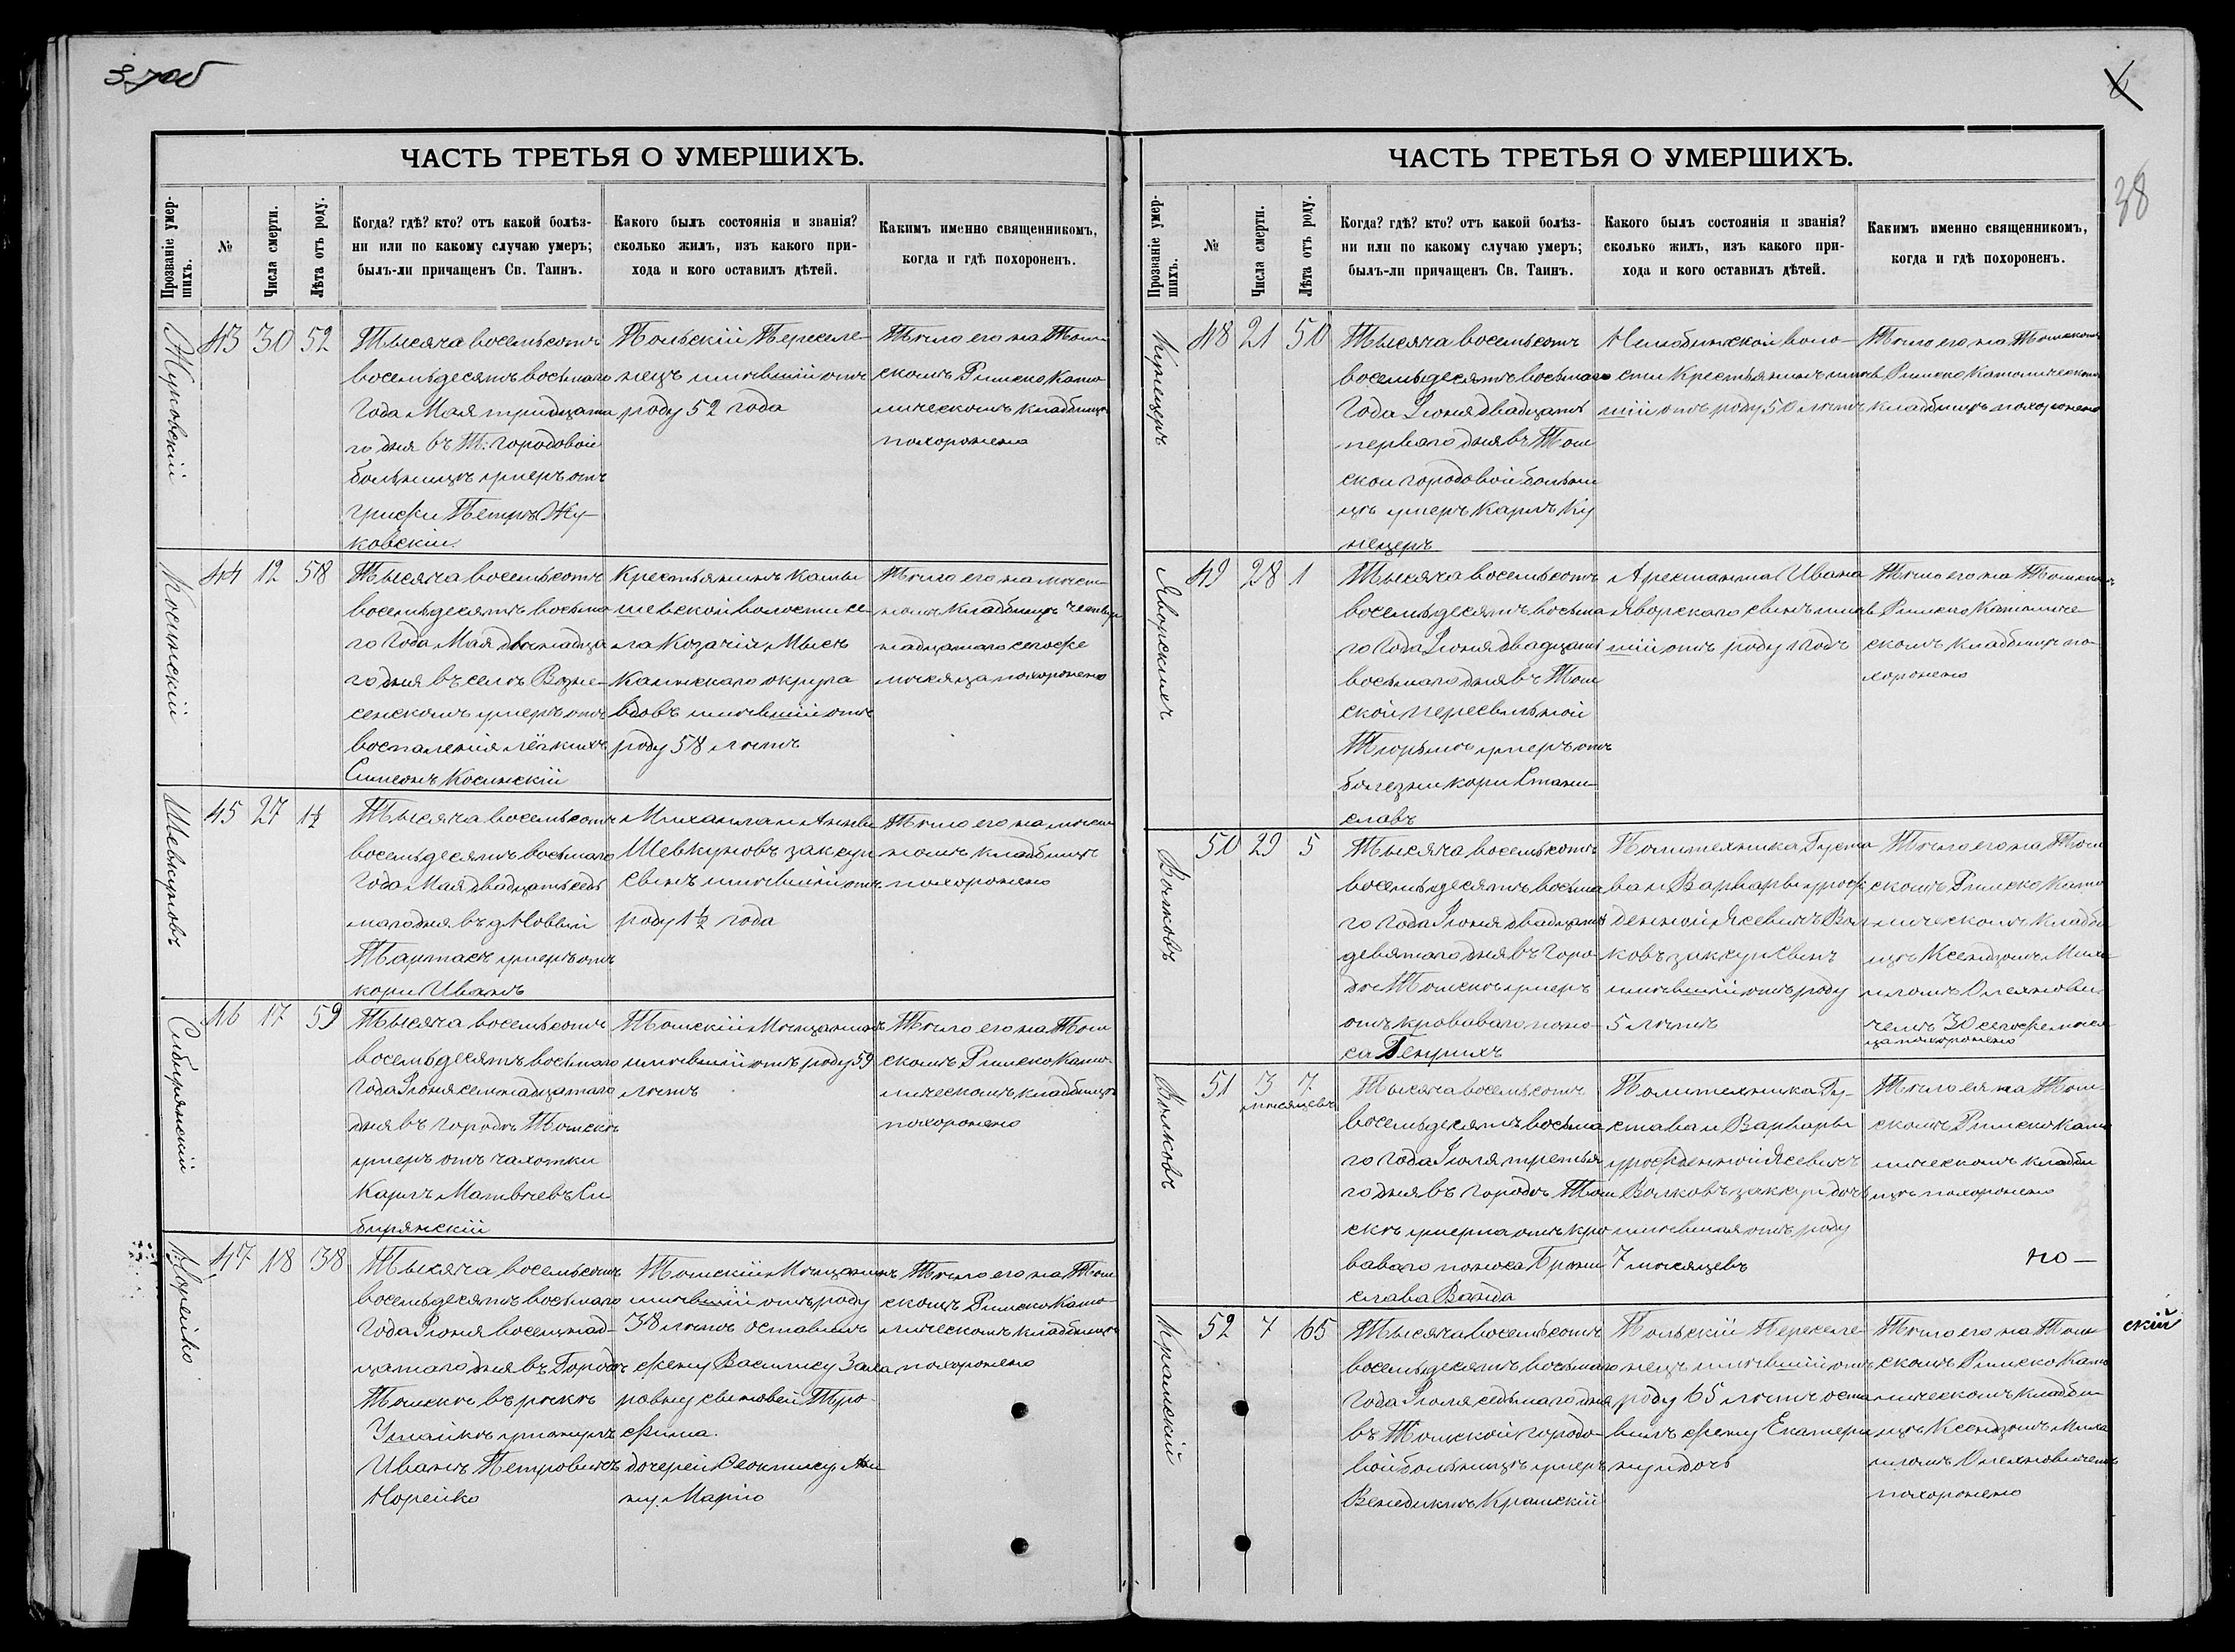 ЧАСТЬ ТРЕТЬЯ О УМЕРШИХЪ.
Прозваніе умер-
шихъ.
№
Числа смерти.
Лѣта отъ роду.
Когда? гдѣ? кто? отъ какой болѣз-
ни или по какому случаю умеръ;
былъ-ли причащенъ Св. Таинъ.
Какого былъ состоянія и званія?
сколько жилъ, изъ какого при-
хода и кого оставилъ дѣтей.
Каким именно священникомъ,
когда и гдѣ похороненъ.
Жуковскій
43 30 52
Тысяча восемьсотъ
восемьдесятъ восьмаго
года Мая тридцата
го дня въ Т: городовой
больницѣ умеръ отъ
Петръ Жу-
ковскій.
Польскій Переселе-
нецъ имѣвшій отъ
роду 52 года
Тѣло его на Том-
скомъ Римско Като
лическомъ кладбищѣ
похоронено
Косинскій
44 12 58
Тысяча восемьсотъ
восемьдесятъ восьма
го года Мая двенадца
го дня въ селѣ Возне-
сенскомъ умеръ отъ
воспаленія лёгкихъ
Симеонъ Косинскій
Крестьянинъ Каты
шевской волости се-
ла Козачій Мысъ
Каинскаго округа
вдовъ имѣвшій отъ
роду 58 лѣтъ
Тѣло его на мѣст-
номъ кладбищѣ четыр
надцатаго сегоже
мѣсяца похоронено
Шевкуновъ
45 27 1½
Тысяча восемьсотъ
восемьдесятъ восьмаго
года Мая двадцать седь
маго дня въ д Новый
Тартасъ умеръ отъ
кори Иванъ
Михаила и Анны
Шевкуновъ зак суп
сынъ имѣвшій отъ
роду 1½ года
Тѣло его на мѣст
номъ кладбищѣ
похоронено
Сибирянскій
46 17 59
Тысяча восемьсотъ
восемьдесятъ восьмаго
года Іюня семнадцатаго
дня въ городѣ Томскѣ
умеръ отъ чахотки
Карлъ Матвѣевъ Си
бирянскій
Томскій Мѣщанинъ
имѣвшій отъ роду 59
лѣтъ
Тѣло его на Том
скомъ Римско Като-
лическомъ кладбищѣ
похоронено
Норейко
47 18 38
Тысяча восемьсотъ
восемьдесятъ восьмаго
года Іюня восемнад-
цатаго дня въ Городѣ
Томскѣ въ рѣкѣ
Ушайкѣ утонулъ
Иванъ Петровичъ
Норейко
Томскій Мѣщанинъ
имѣвшій отъ роду
38 лѣтъ оставилъ
жену Василису Заха
ровну сыновей Тро-
фима.
дочерей Феоктису Ан
ну. Марію
Тѣло его на Том
скомъ Римско Като-
лическомъ кладбищѣ
похоронено
38
ЧАСТЬ ТРЕТЬЯ О УМЕРШИХЪ.
Прозваніе умер-
шихъ.
№
Числа смерти.
Лѣта отъ роду.
Когда? гдѣ? кто? отъ какой болѣз-
ни или по какому случаю умеръ;
былъ-ли причащенъ Св. Таинъ.
Какого былъ состоянія и званія?
сколько жилъ, изъ какого при-
хода и кого оставилъ дѣтей.
Каким именно священникомъ,
когда и гдѣ похороненъ.
Купецеръ
48 21 50
Тысяча восемьсотъ
восемьдесятъ восьмаго
года Іюня двадцать
перваго дня въ Том
ской городовой больни
цѣ умеръ Карлъ Ку
пецеръ
Нелюбинской воло-
сти Крестьянинъ имѣв
шій отъ роду 50 лѣтъ
Тѣло его на Томскомъ
Римско Католическомъ
кладбищѣ похоронено
Яворскихъ
49 28 1
Тысяча восемьсотъ
восемьдесятъ восьма
го года Іюня двадцать
восьмаго дня въ Том
ской пересыльной
Тюрьмѣ умеръ отъ
болезни кори Стани-
славъ
Арестанта Ивана
Яворскаго сынъ имѣв
шій отъ роду 1 годъ
Тѣло его на Томскомъ
Римско Католиче
скомъ кладбищѣ по-
хоронено
Волковъ
50 29 5
Тысяча восемьсотъ
восемьдесятъ восьма
го года Іюня двадцать
девятаго дня въ Горо-
дѣ Томскѣ умеръ
отъ кроваваго поно-
са Генрихъ
Политехника Густа
ва и Варвары урож
денной Ясевичъ Вол
ковъ зак суп сынъ
имѣвшій отъ роду
5 лѣтъ
Тѣло его на Том
скомъ Римско Като
лическомъ кладби
щѣ Ксендзомъ Миха-
иломъ Олехнови-
чемъ 30 сегоже мѣся
ца похоронено
Волковъ
51 3 7
мѣсяцевъ
Тысяча восемьсотъ
восемьдесятъ восьма
го года Іюля третья
го дня въ городѣ Том
скѣ умерла отъ кро
ваваго поноса Брони
слава Ванда
Политехника Гу-
става и Варвары
урожденной Ясевичъ
Волковъ зак суп дочь
имѣвшая отъ роду
7 мѣсяцевъ
Тѣло ея на Том-
скомъ Римско Като
лическомъ кладби
щѣ похоронено
по —
Крамскій
52 7 65
Тысяча восемьсотъ
восемьдесятъ восьмаго
года Іюля седьмаго дня
въ Томской городо-
вой больницѣ умеръ
Венедиктъ Крамскій
Польскій Переселе-
нецъ имѣвшій отъ
роду 65 лѣтъ оста
вилъ жену Екатери
ну и дочь
Тѣло его на Том-
скомъ Римско Като
лическомъ кладби-
щѣ Ксендзомъ Миха
иломъ Олехновичемъ
похоронено
скій